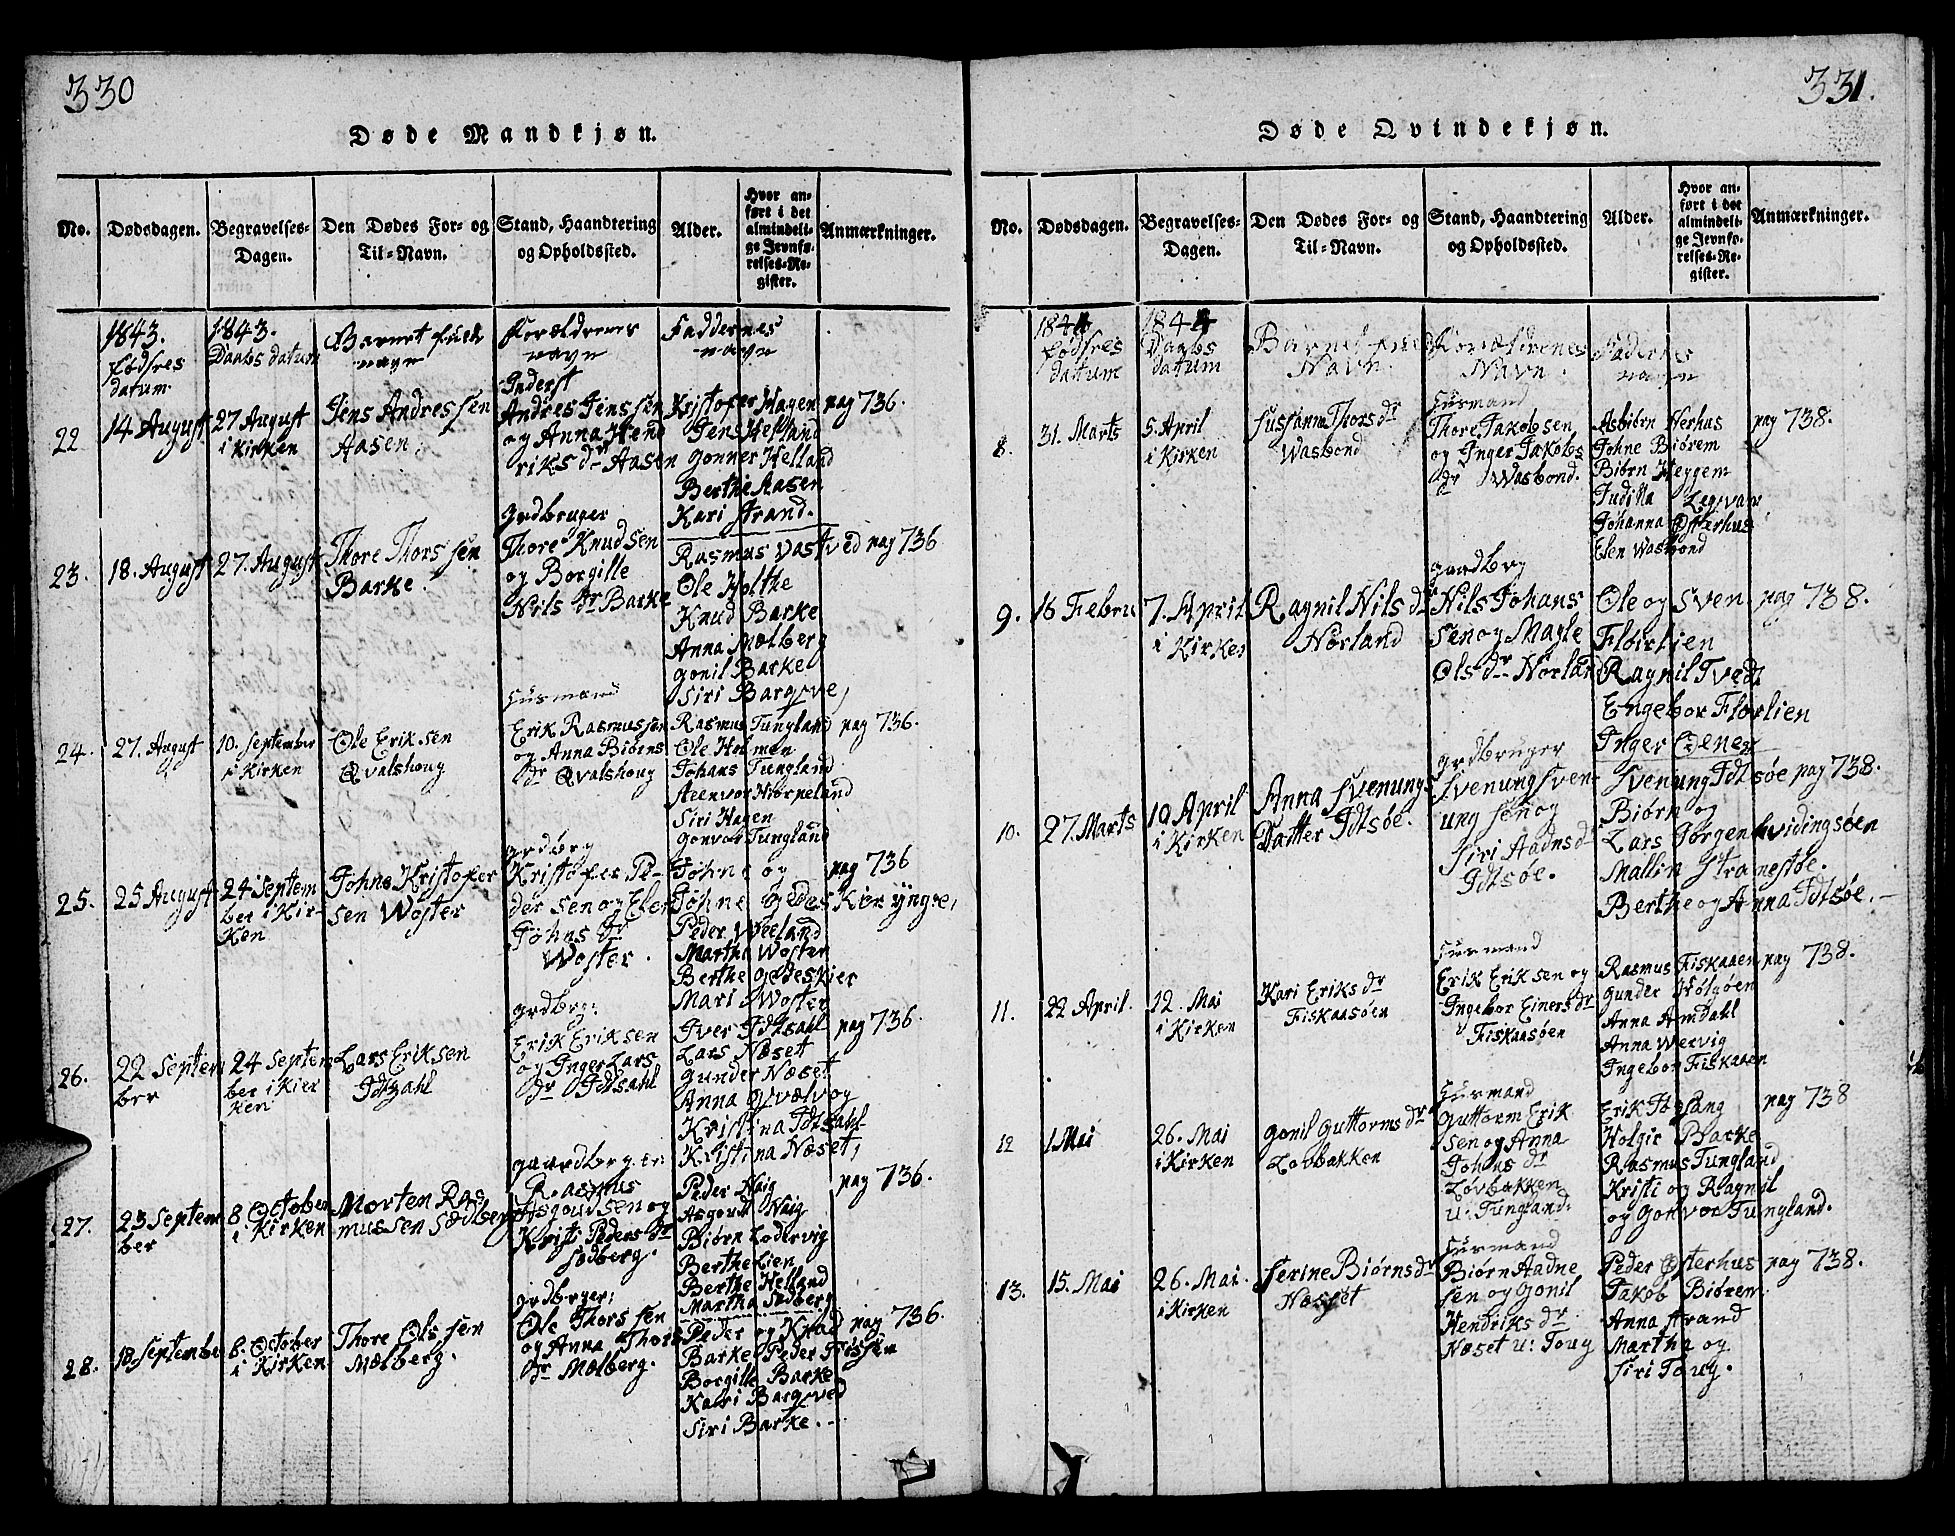 330
Døde Mandkjøn.
No.
Dødsdagen.
Begravelses-
Dagen.
Den Dødes For- og
Til-Navn.
Stand, Haandtering
og Opholdssted.
Alder.
Hvor an-
ført i det
almindeli-
ge Jevnfø-
relses-Re-
gister.
Anmærkninger.
1843.
Fødsres
datum.
1843.
Daabs datum
Barnet fuld
navn
Forældrenes
navn
Faddernes
navn
22
14 August
27 August
i Kirken
Jens Andres sen
Aasen.
Inderst
Andres Jenssen
og Anna Hend
riks dr Aasen
Kristofer Hagen
Jens Helland
Gonner Helland
Berthe Aasen
Kari Strand.
pag 736.
23.
18. August
27. August
Thore Thors sen
Barke.
Grdbruger
Thore Knudsen
og Borgille
Nils dr Barke
Rasmus Vastved
Ole Holthe
Knud Barke
Anna Mælberg
Gonil Barke
Siri Bargsve,
pag 736
24.
27. August
10. September
i Kirken
Ole Erik sen
Qvalshoug
Husmand
Erik Rasmussen
og Anna Biørns
dr Qvalshoug
Rasmus Tungland
Ole Holmen
Johans Tungland
Steenvor Hiorpeland
Siri Hagen
Gonvor Tungland
pag 736.
25.
25 August
24 Septem
ber i Kir-
ken
Johns Kristofer
sen Woster
Grdbrg
Kristofer Pe-
der sen og Elen
Johns dr
Woster.
Johns og
Johne Gedes Kier yngre,
Peder Vøeland
Martha Woster
Berthe Gedeskier
Mari Woster
pag 736
26.
22 Septem
ber
24 Septem
ber i Kir
ken
Lars Erik sen
Idtzahl
Grdbrg:
Erik Erik sen
og Inger Lars
dr Idtsahl
Iver Idtsahl
Lars Næset
Gunder Næset
Anna Qvælvog
Kristina Idtsahl
Kristina Næset,
pag 736.
27.
23 Septem
ber
8 October
i Kirken
Morten Ras
mussen Sædberg
Gaardbrg.er
Rasmus
Asgoudsen og
Kristi Peders dr
Sødberg.
Peder Haig
Asgoud Waig
Biørn Lodervig
Berthe Lien
Berthe Helland
Martha Sødberg
pag 736.
28.
18. September
8. October
i Kirken
Thore Ols sen
Mælberg.
Grdbrger;
Ole Thors sen
og Anna Thors
dr Mælberg.
Peder og Knud
Barke Peder Fossen
Borgille Barke
Kari Bargsved
Siri Barke.
pag 736.
331.
Døde Qvindekjøn.
No.
Dødsdagen.
Begravelses-
Dagen.
Den Dødes For- og
Til-Navn.
Stand, Haandtering
og Opholdssted.
Alder.
Hvor an-
ført i det
almindeli-
ge Jevnfø-
relses-Re-
gister.
Anmærkninger.
1844
Fødsres
datum
1844
Daabs
datum
Barnet fuld
Navn.
Forældrenes
Navn.
Fadernes
navn
8.
31. Marts
5. April
i Kirken
Sussanna Thors dr
Wasbond
Husmand
Thore Jakobsen
og Inger Jakobs
dr Wasbond.
Asbiørn Nerhus
Johne Biørem
Biørn Heggem
Juditta Legvar
Johanna Østerhus
Elen Wasbond
pag 738.
9.
16 Febru
7. April
i Kirken
Ragnil Nils dr
Norland
Gardbrg
Nils Johans
sen og Magle
Ols dr Norland
Ole og Sven
Flørlien
Ragnil Tvedt
Engebor Flørlien
Inger Eenes
pag 738.
10.
27. Marts
10 April
i Kirken
Anna Svenungs
Datter Idtsøe.
Grdbruger
Svenung Sven-
ung sen og
Siri Aadns dr
Idtsøe.
Svenung Idtsøe
Biørn og
Lars Jørgen Hvidingsøen
Mallin Stranestøe.
Berthe og Anna Idtsøe.
pag 738.
11.
22 April.
12. Mai
i Kirken
Kari Eriks dr
Fiskaasøen
Husmand
Erik Erik sen og
Ingebor Einers dr
Fiskaasøen
Rasmus Fiskaaen
Gunder Hølgøen
Anna Amdahl
Anna Wervig
Ingebor Fiskaaen
pag 738.
12
1 Mai
26. Mai
i Kirken
Gonil Guttorms dr
Lovbakken
Husmand
Guttorm Erik
sen og Anna
Johns dr
Løvbakken
u: Tungland.
Erik Is Lang
Holgir Barke
Rasmus Tungland
Kristi og Ragnil
og Gonvor Tungland.
pag 738
13.
15. Mai
26. Mai.
i Kirken
Serine Biørns dr
Næset
Husmand
Biørn Aadne
sen og Gonil
Hendriks dr.
Næset u: Toug
Peder Østerhus
Jakob Biørem
Anna Strand
Martha og
Siri Toug.
pag 738.